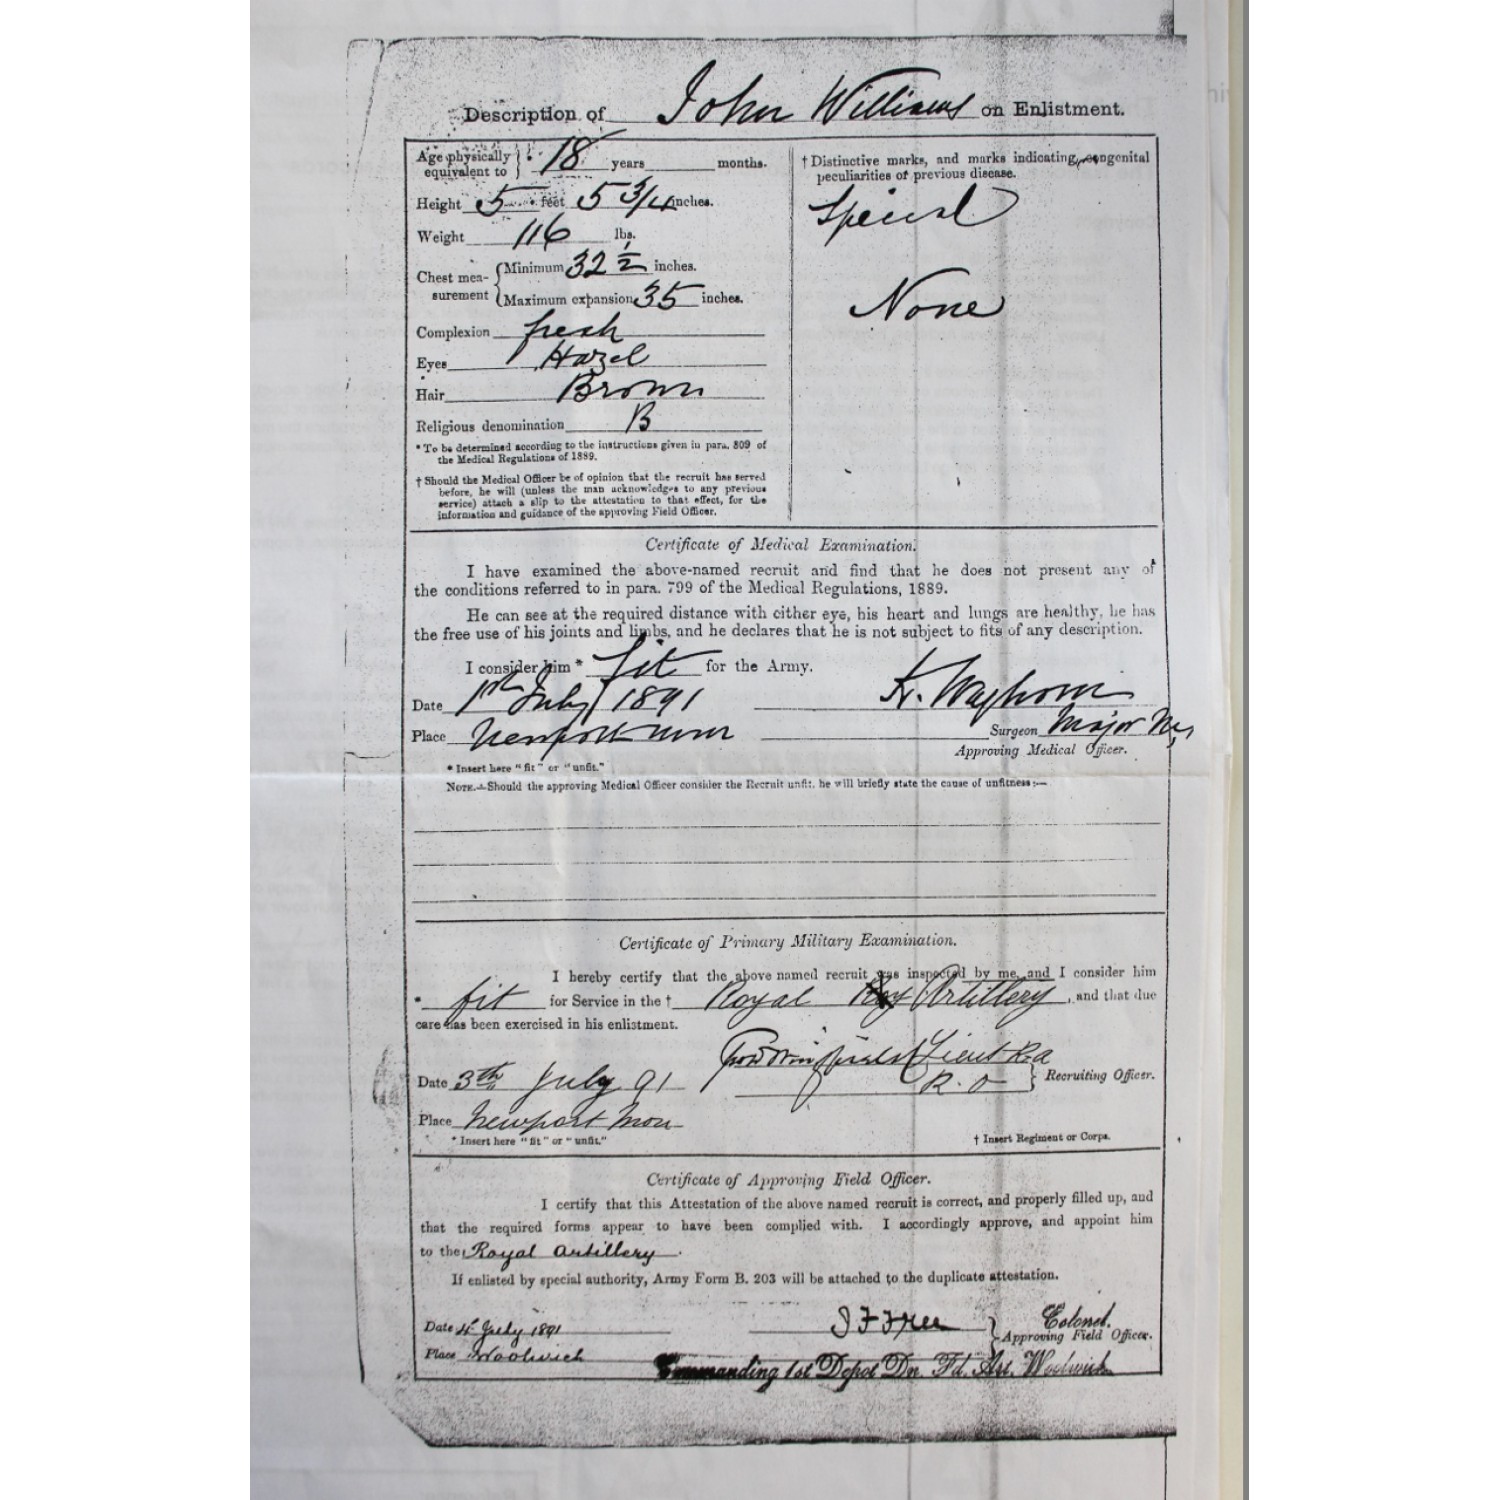 Description of John Williams on Enlistment.
Age physically equivalent to } 18 years months.
Height 5 feet 5 3/4 inches.
Weight 116 lbs.
Chest measurement { Minimum 32 1/2 inches.
Maximum expansion 35 inches.
Complexion fresh
Eyes Hazel
Hair Brown
Religious denomination B
* To be determined according to the instructions given in para. 809 of
the Medical Regulations of 1889.
† Should the Medical Officer be of opinion that the recruit has served
before, he will (unless the man acknowledges to any previous
service) attach a slip to the attestation to that effect, for the
information and guidance of the approving Field Officer.
† Distinctive marks, and marks indicating congenital
peculiarities of previous disease.
Special
None
Certificate of Medical Examination.
I have examined the above-named recruit and find that he does not present any of
the conditions referred to in para. 799 of the Medical Regulations, 1889.
He can see at the required distance with either eye, his heart and lungs are healthy, he has
the free use of his joints and limbs, and he declares that he is not subject to fits of any description.
I consider him * fit for the Army.
Date 1st July 1891
Place Newport Mon
Surgeon Major
Approving Medical Officer.
* Insert here "fit" or "unfit."
NOTE.—Should the approving Medical Officer consider the Recruit unfit, he will briefly state the cause of unfitness:—
Certificate of Primary Military Examination.
I hereby certify that the above named recruit was inspected by me, and I consider him
* fit for Service in the † Royal Artillery, and that due
care has been exercised in his enlistment.
Lieut R.A
Date 3th July 91 R.O } Recruiting Officer.
Place Newport Mon
* Insert here "fit" or "unfit."
† Insert Regiment or Corps.
Certificate of Approving Field Officer.
I certify that this Attestation of the above named recruit is correct, and properly filled up, and
that the required forms appear to have been complied with. I accordingly approve, and appoint him
to the Royal Artillery.
If enlisted by special authority, Army Form B. 203 will be attached to the duplicate attestation.
Date 4 July 1891
Place Woolwich
} Colonel.
Approving Field Officer.
Commanding 1st Depot Dn. Fd. Art. Woolwich